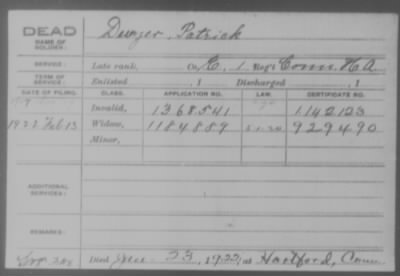 DEAD
NAME OF SOLDIER:
Dwyer, Patrick
SERVICE:
Late rank, Co. C, 1 Reg't Conn. H A
TERM OF SERVICE:
Enlisted , 1 Discharged , 1
DATE OF FILING. CLASS. APPLICATION NO. LAW. CERTIFICATE NO.
Invalid, 1368541 1142123
1922 Feb 13 Widow, 1184889 929490
Minor,
ADDITIONAL SERVICES:
REMARKS:
Died 23, 1922, at Hartford, Conn.